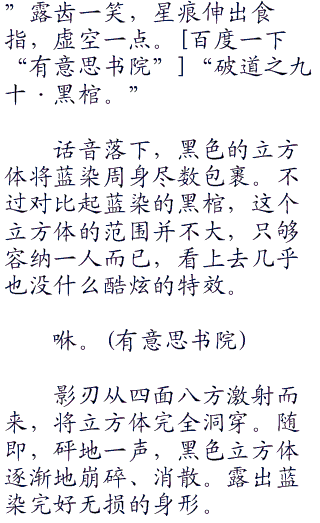 ”露齿一笑，星痕伸出食
指，虚空一点。[百度一下
“有意思书院”]“破道之九
十·黑棺。”
话音落下，黑色的立方
体将蓝染周身尽数包裹。不
过对比起蓝染的黑棺，这个
立方体的范围并不大，只够
容纳一人而已，看上去几乎
也没什么酷炫的特效。
咻。(有意思书院)
影刃从四面八方激射而
来，将立方体完全洞穿。随
即，砰地一声，黑色立方体
逐渐地崩碎、消散。露出蓝
染完好无损的身形。